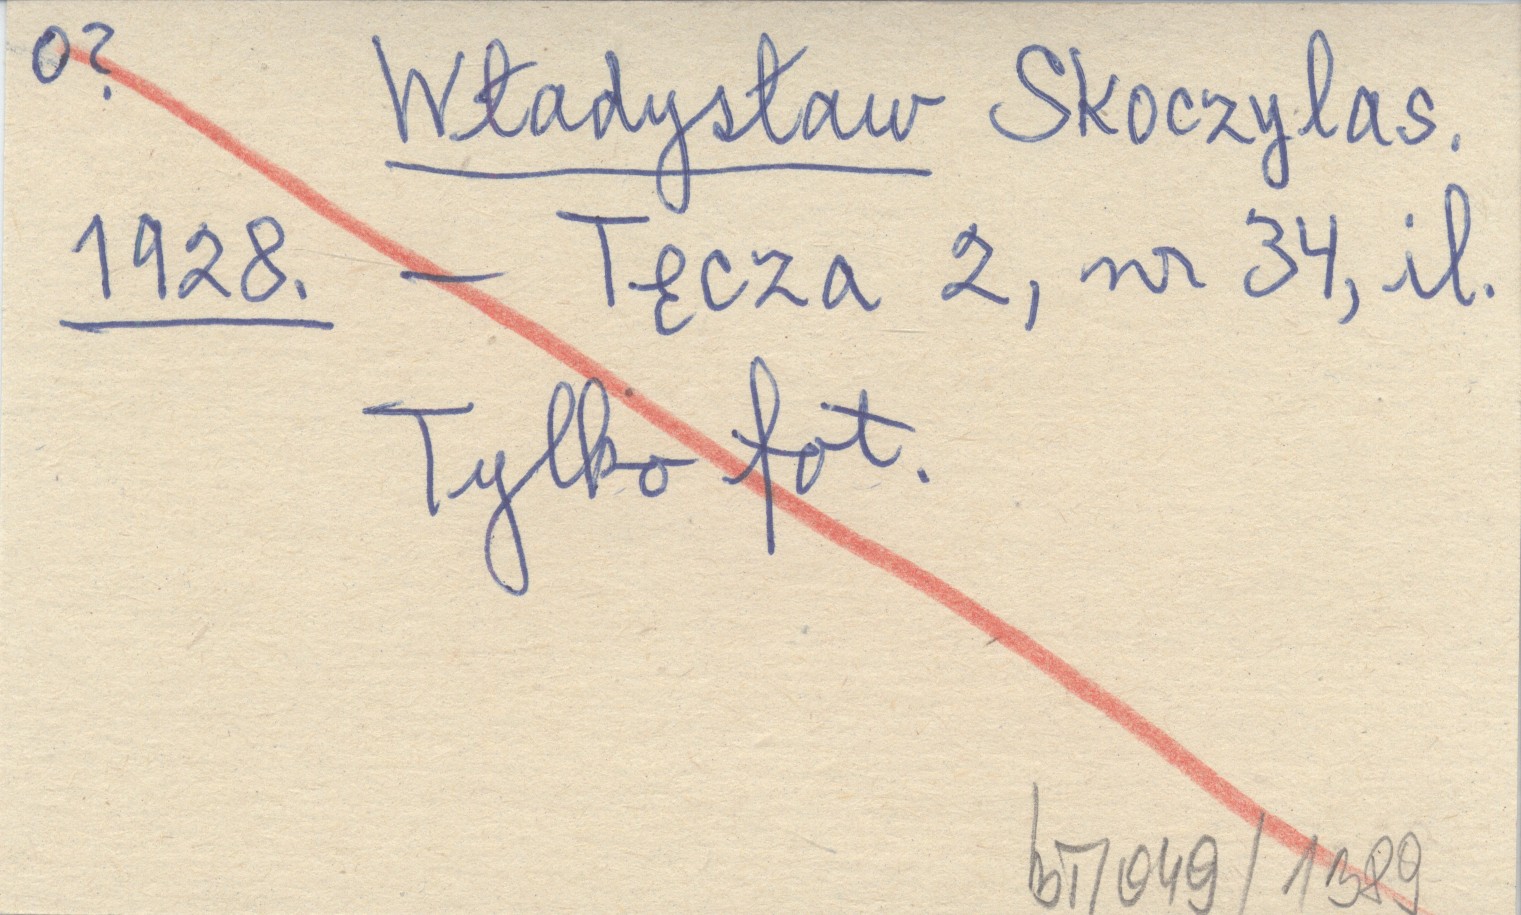 o?
Władysław Skoczylas.
1928. — Tęcza 2, nr 34, il.
Tylko fot.
/ 1389